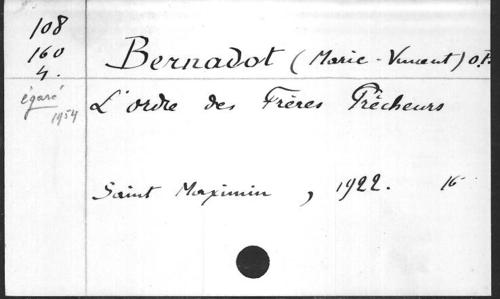 108
160
4.
égaré
1954
Bernadot (Marie-Vincent) O.P.
L'ordre des Frères Prêcheurs
Saint Maximin, 1922. 16